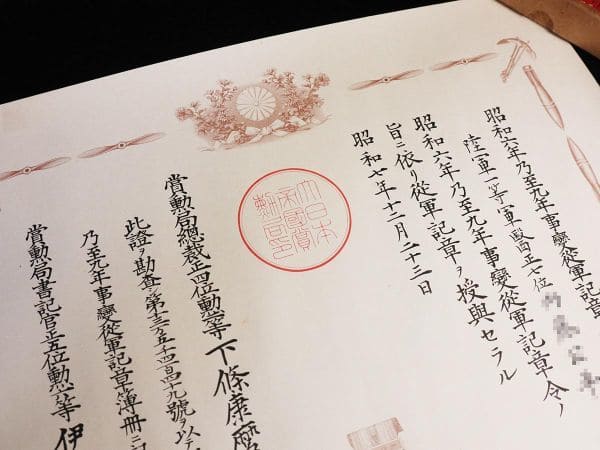 昭和六年乃至九年事變從軍記章
陸軍一等軍醫正七位
昭和六年乃至九年事變從軍記章令ノ
旨ニ依リ從軍記章ヲ授與セラル
昭和七年十二月二十三日
大日本
帝國賞
勲局印
賞勲局總裁正四位勲等下條康麿
此證ヲ勘査シ第十三万五千四百四十九號ヲ以テ
乃至九年事變從軍記章簿册ニ記
賞勲局書記官正五位勲等伊